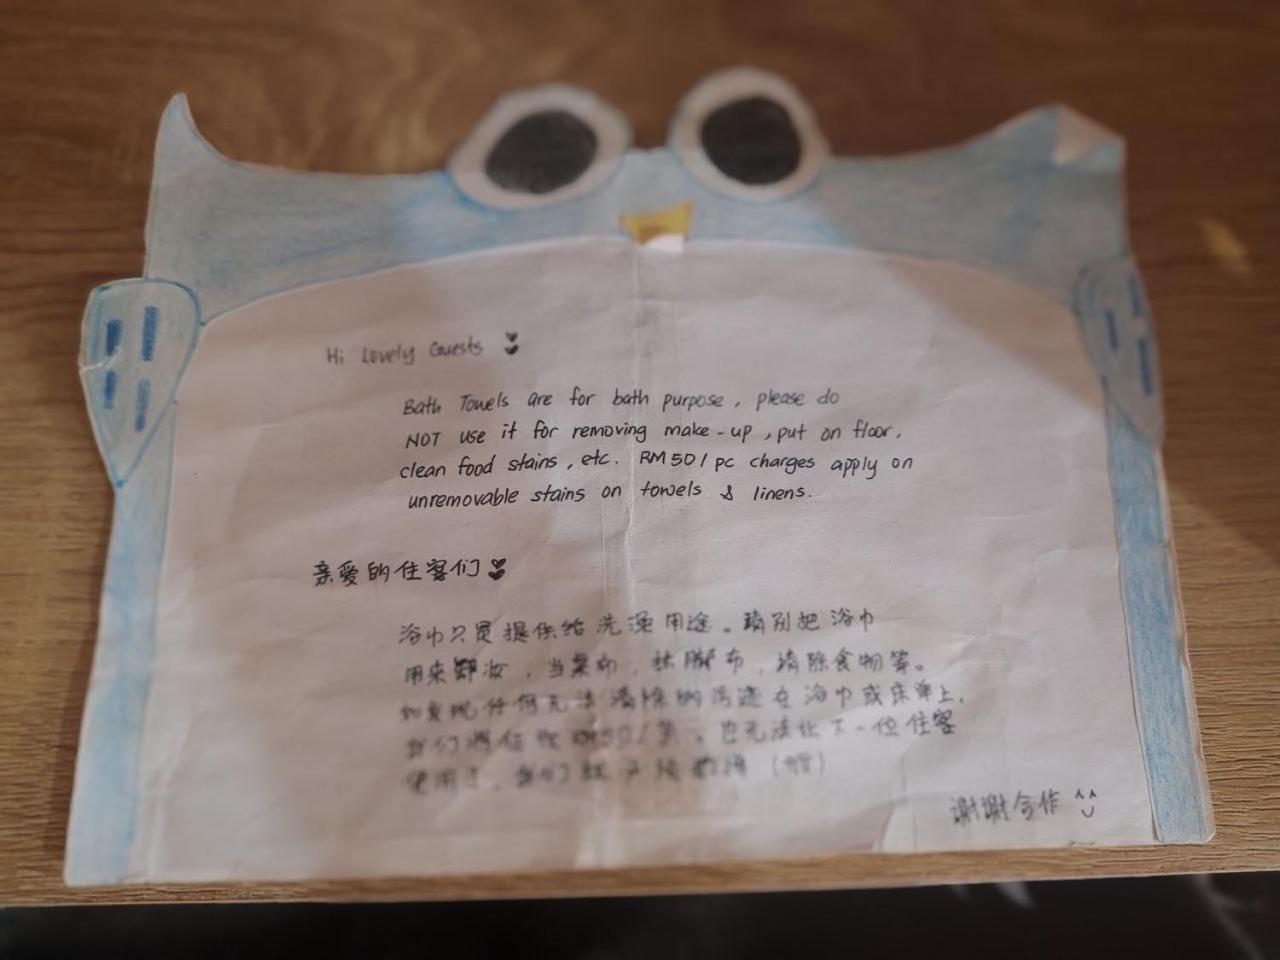 Hi Lovely Guests
Bath Towels are for bath purpose, please do
NOT use it for removing make-up, put on floor,
clean food stains, etc. RM50/pc charges apply on
unremovable stains on towels & linens.
亲爱的住客们
浴巾只是提供给洗澡用途。请别把浴巾
用来卸妆，当桌布，抹脚布，清除食物等。
如发现任何无法清除的污迹在浴巾或床单上，
我们将征收RM50/条。也无法让下一位住客
使用了。我们
谢谢合作